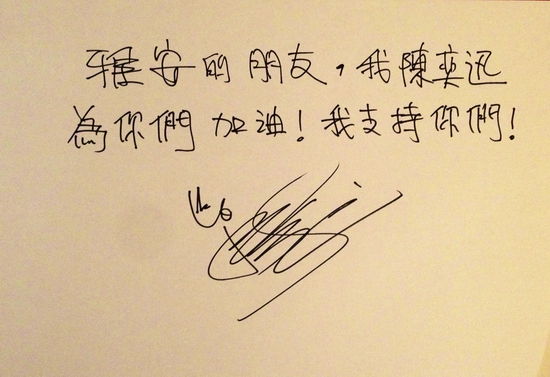 雅安的朋友，我陳奕迅
為你們加油！我支持你們！